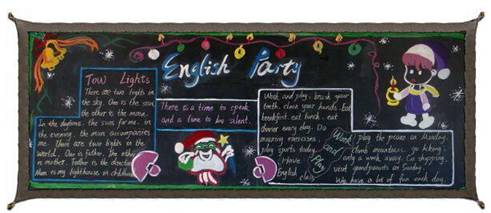 English Party
Tow Lights
There are two lights in
the sky. One is the sun
the other is the moon.
In the daytime, the sun for me. In
the evening, the moon accompanies
me. There are two lights in the
world. One is father. The other
is mother. Father is the direction
Mom is my lighthouse in childhood
There is a time to speak
and a time to be silent.
Work and play, brush your
teeth, clean your hands. Eat
breakfast, eat lunch, eat
dinner every day. Do
morning exercises,
play sports
Have
English class
Work and Play
play the piano on Sunday,
climb mountains, go hiking
only a week away. Go shopping,
visit grandparents on Sunday.
We have a lot of fun each day.